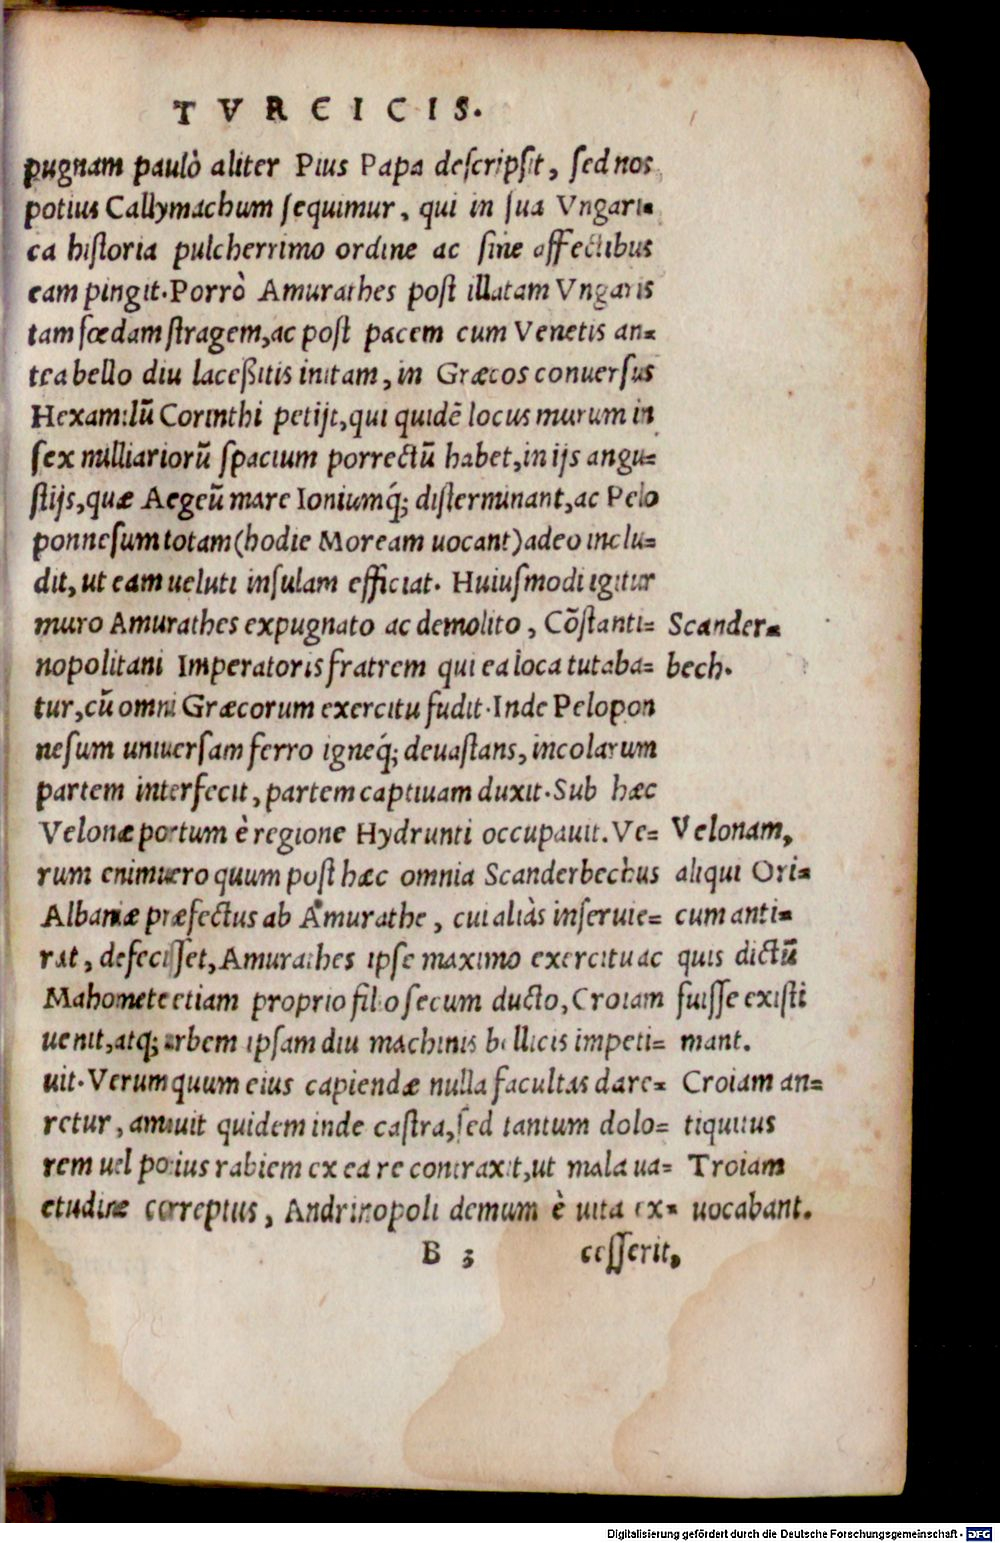 TVRCICIS.
pugnam paulò aliter Pius Papa descripsit, sed nos
potius Callymachum sequimur, qui in sua Vngari-
ca historia pulcherrimo ordine ac sine affectibus
eam pingit. Porrò Amurathes post illatam Vngaris
tam fœdam stragem, ac post pacem cum Venetis an-
tea bello diu laceßitis initam, in Græcos conuersus
Hexamilũ Corinthi petijt, qui quidẽ locus murum in
sex milliariorũ spacium porrectũ habet, in ijs angu-
stijs, quæ Aegeũ mare Ioniumq́; disterminant, ac Pelo
ponnesum totam (hodie Moream uocant) adeo inclu-
dit, ut eam ueluti insulam efficiat. Huiusmodi igitur
muro Amurathes expugnato ac demolito, Cõstanti-
nopolitani Imperatoris fratrem qui ea loca tutaba-
tur, cũ omni Græcorum exercitu fudit. Inde Pelopon
nesum uniuersam ferro igneq́; deuastans, incolarum
partem interfecit, partem captiuam duxit. Sub hæc
Velonæ portum è regione Hydrunti occupauit. Ve-
rum enimuero quum post hæc omnia Scanderbechus
Albaniæ præfectus ab Amurathe, cui aliàs inseruie-
rat, defecisset, Amurathes ipse maximo exercitu ac
Mahomete etiam proprio filio secum ducto, Croiam
uenit, atq; urbem ipsam diu machinis bellicis impeti-
uit. Verum quum eius capiendæ nulla facultas dare-
retur, amouit quidem inde castra, sed tantum dolo-
rem uel potius rabiem ex ea re contraxit, ut mala ua-
etudine correptus, Andrinopoli demum è uita ex-
B 3 cesserit,
Scander-
bech.
Velonam,
aliqui Ori-
cum anti-
quis dictũ
fuisse existi
mant.
Croiam an-
tiquitus
Troiam
uocabant.
Digitalisierung gefördert durch die Deutsche Forschungsgemeinschaft - DFG